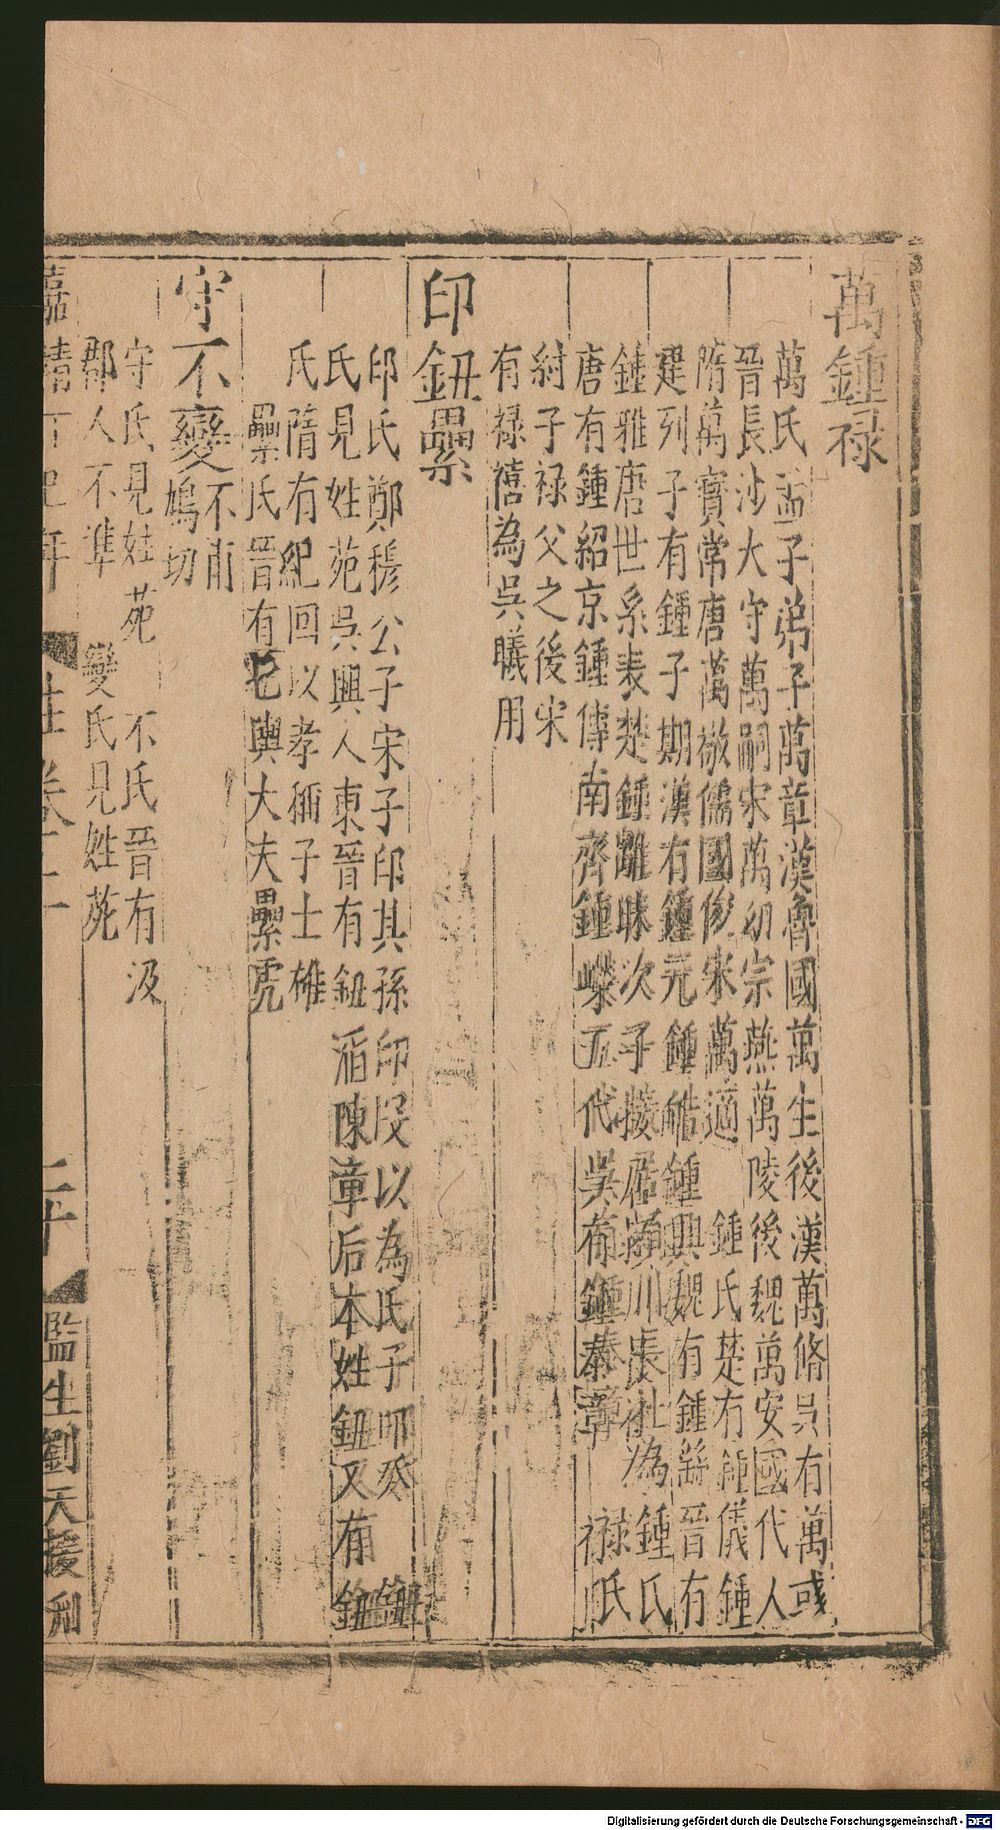 萬鍾禄
萬氏孟子弟子萬章漢魯國萬生後漢萬脩吳有萬彧
晉長沙大守萬嗣宋萬幼宗燕萬陵後魏萬安國代人
隋萬寳常唐萬敬儒國俊宋萬適 鍾氏楚有鍾儀鍾
建列子有鍾子期漢有鍾元鍾皓鍾興魏有鍾繇晉有
鍾雅唐世系表楚鍾離昧次子接居潁川長社為鍾氏
唐有鍾紹京鍾傳南齊鍾嶸五代吳有鍾泰章 禄氏
紂子禄父之後宋
有禄禧為吳曦用
印鈕纍
印氏鄭穆公子宋子印其孫印段以為氏子印癸 鈕
氏見姓苑吳興人東晉有鈕滔陳章后本姓鈕又有鈕
氏隋有紀回以孝稱子士雄
纍氏晉有七輿大夫纍虎
守不變不甫
鳩切
守氏見姓苑 不氏晉有汲
郡人不準 變氏見姓苑
嘉靖丁巳年 姓 卷二十 二十 監生劉天接刊
Digitalisierung gefördert durch die Deutsche Forschungsgemeinschaft - DFG